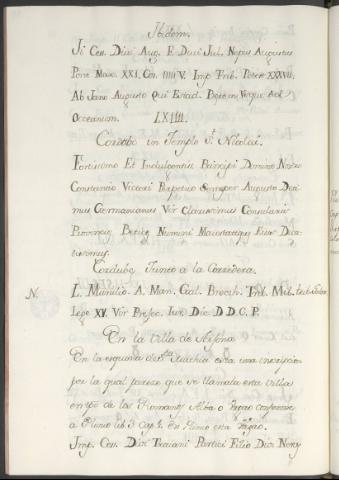 Ibidem.
Ji Ces. Divi Aug. F Divi Jul. Nepus Augustus
Pont Maxs. XXI. Cos. IIII V. Imp Trib. Potest XXXVII.
Ab Jano Augusto Qui Est ad Betem Usque ad
Occeanum. LXIIII.
Cordoba en Templo St. Nicolai.
Fortisimo Et Indulcentis Principi Domino Nostro
Constancio Victori Perpetuo Semper Augusto Deci
mus Germanianus Vir Clarisimus Consularis
Provincię Beticę Numini Maiestatique Eius Dica
tisimus.
Cordube Junto a la Corredera.
N. L. Manilio. A. Man. Gal. Trib. Mil.
Lege XV. Vir Prefec. Jur. Dic. D. D. C. P.
En la Villa de
En la esquina de Sta esta una inscripcion
por la qual parece que se llamaba esta Villa
en tpo. de los Romanos Alba o Vrgao conforme
a Plinio lib. 3. Cap. 1. En Plinio esta Vrgao.
Jmp. Ces. Divi Traiani Partici Filio Divi Nerv